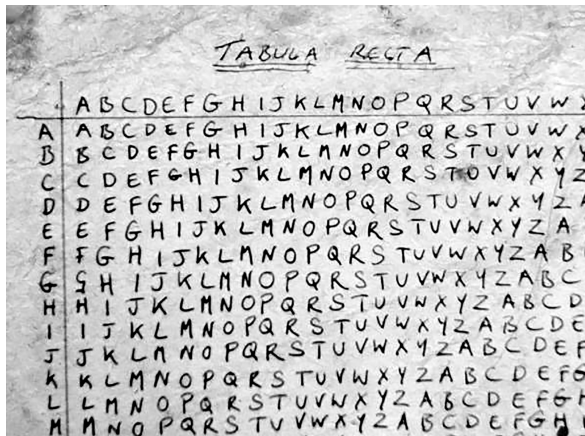 TABULA RECTA
A B C D E F G H I J K L M N O P Q R S T U V W
A A B C D E F G H I J K L M N O P Q R S T U V W X
B B C D E F G H I J K L M N O P Q R S T U V W X Y
C C D E F G H I J K L M N O P Q R S T U V W X Y Z
D D E F G H I J K L M N O P Q R S T U V W X Y Z A
E E F G H I J K L M N O P Q R S T U V W X Y Z A
F F G H I J K L M N O P Q R S T U V W X Y Z A B
G G H I J K L M N O P Q R S T U V W X Y Z A B C
H H I J K L M N O P Q R S T U V W X Y Z A B C D
I I J K L M N O P Q R S T U V W X Y Z A B C D E
J J K L M N O P Q R S T U V W X Y Z A B C D E F
K K L M N O P Q R S T U V W X Y Z A B C D E F G
L L M N O P Q R S T U V W X Y Z A B C D E F G H
M M N O P Q R S T U V W X Y Z A B C D E F G H